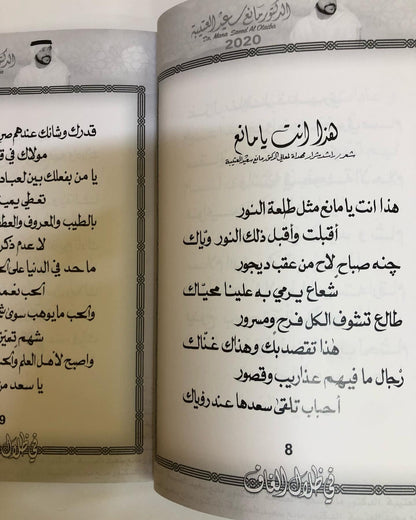 الدكتور مانع سعيد العتيبة
Dr. Mana Saeed Al Otaiba
2020
هذا انت يا مانع
شعر راشد شرار مهداة لمعالي الدكتور مانع سعيد العتيبة
هذا انت يا مانع مثل طلعة النور
أقبلت وأقبل ذلك النور وياك
چنه صباح لاح من عقب ديجور
شعاع يرمي به علينا محياك
طالع تشوف الكل فرح ومسرور
هذا تقصد بك وهذاك غناك
رجال ما فيهم عذاريب وقصور
أحباب تلقى سعدها عند رؤياك
8
في ظلال الغاف
قدرك وشانك عندهم
مولاك في
يا من بفعلك بين
تعطي
بالطيب والمعروف
لا عدم
ما حد في الدنيا على
الحب
والحب ما يوهب سوى
شهم
واصبح لأهل العلم
يا سعد
9
في ظلال الغاف